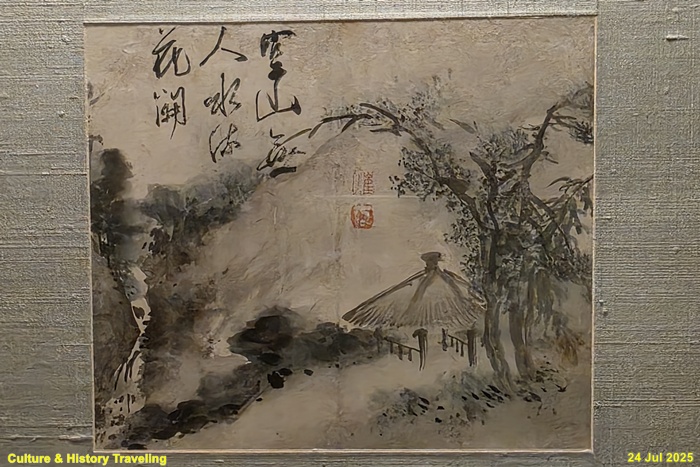 空山無
人水流
花開
Culture & History Traveling
24 Jul 2025